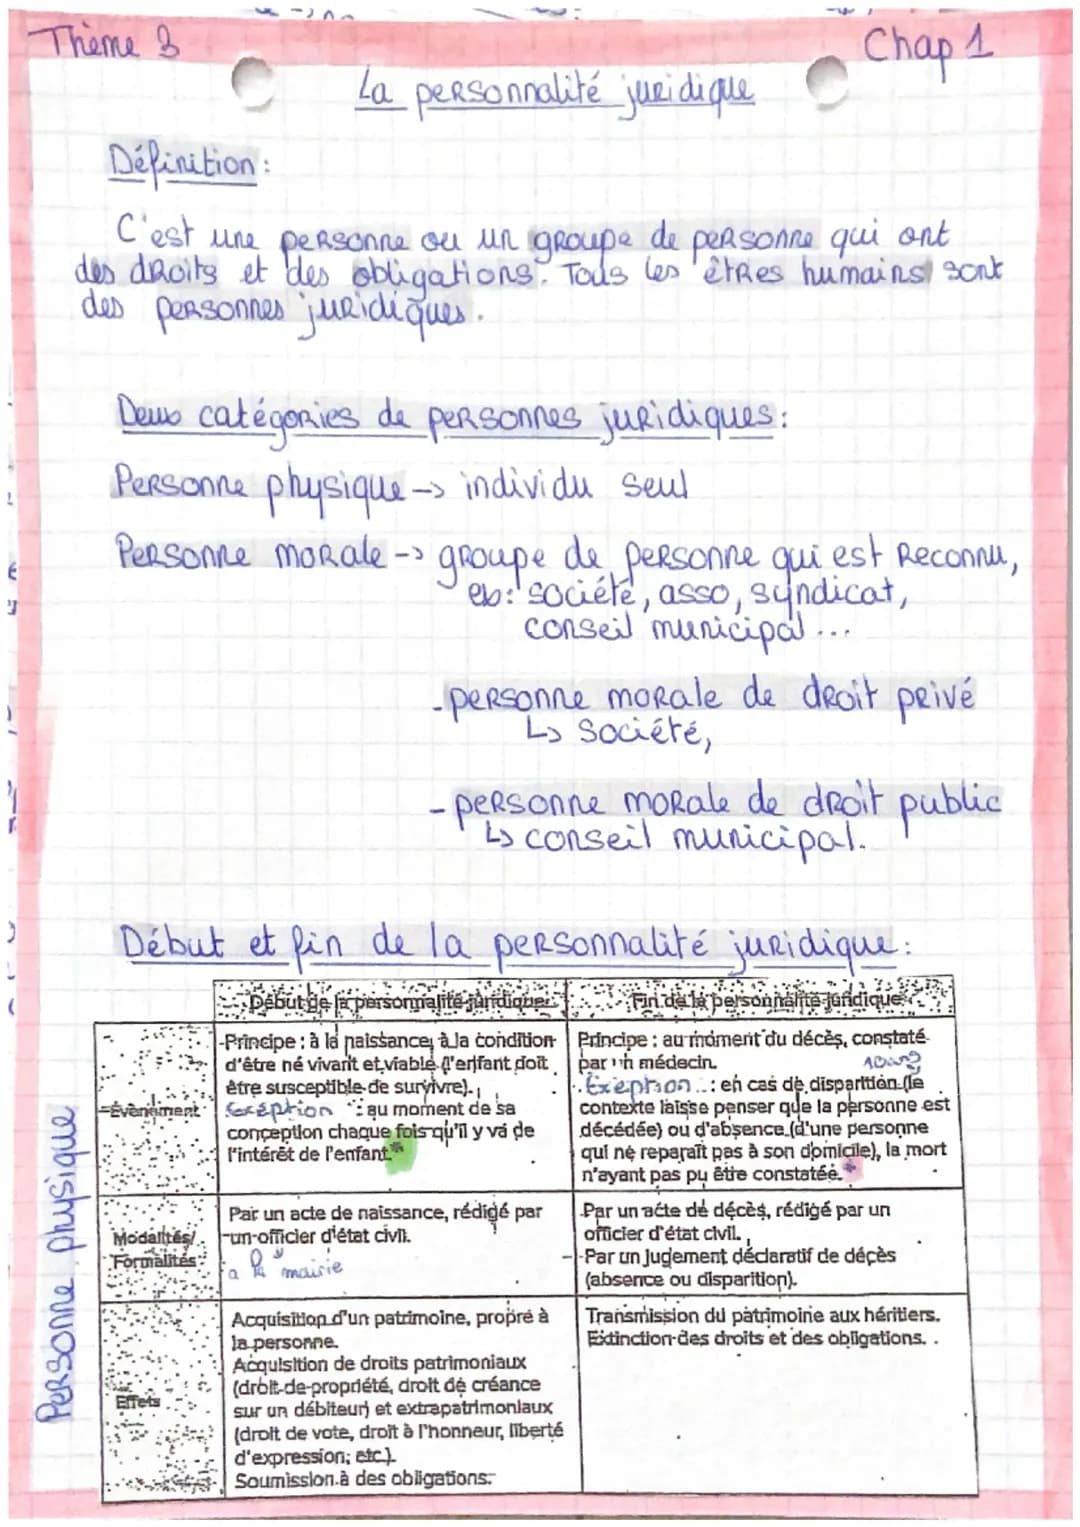 Thème 3
Chap 1
La personnalité juridique
Définition :
C'est une personne ou un groupe de personne qui ont
des droits et des obligations. Tous les êtres humains sont
des personnes juridiques.
Deux catégories de personnes juridiques :
Personne physique -> individu seul
Personne morale -> groupe de personne qui est reconnu,
ex : société, asso, syndicat,
conseil municipal ...
- personne morale de droit privé
↳ société,
- personne morale de droit public
↳ conseil municipal.
Début et fin de la personnalité juridique :
Personne physique
Début de la personnalité juridique
Fin de la personnalité juridique
Évènement
- Principe : à la naissance, à la condition
d'être né vivant et viable (l'enfant doit
être susceptible de survivre).
Exéption : au moment de sa
conception chaque fois qu'il y va de
l'intérêt de l'enfant.*
Principe : au moment du décès, constaté
par un médecin.
10ans
Exéption : en cas de disparition (le
contexte laisse penser que la personne est
décédée) ou d'absence (d'une personne
qui ne reparaît pas à son domicile), la mort
n'ayant pas pu être constatée.*
Modalités/
Formalités
Par un acte de naissance, rédigé par
un officier d'état civil.
à la mairie
Par un acte de décès, rédigé par un
officier d'état civil.
Par un jugement déclaratif de décès
(absence ou disparition).
Effets
Acquisition d'un patrimoine, propre à
la personne.
Acquisition de droits patrimoniaux
(droit de propriété, droit de créance
sur un débiteur) et extrapatrimoniaux
(droit de vote, droit à l'honneur, liberté
d'expression, etc.).
Soumission à des obligations.
Transmission du patrimoine aux héritiers.
Extinction des droits et des obligations.